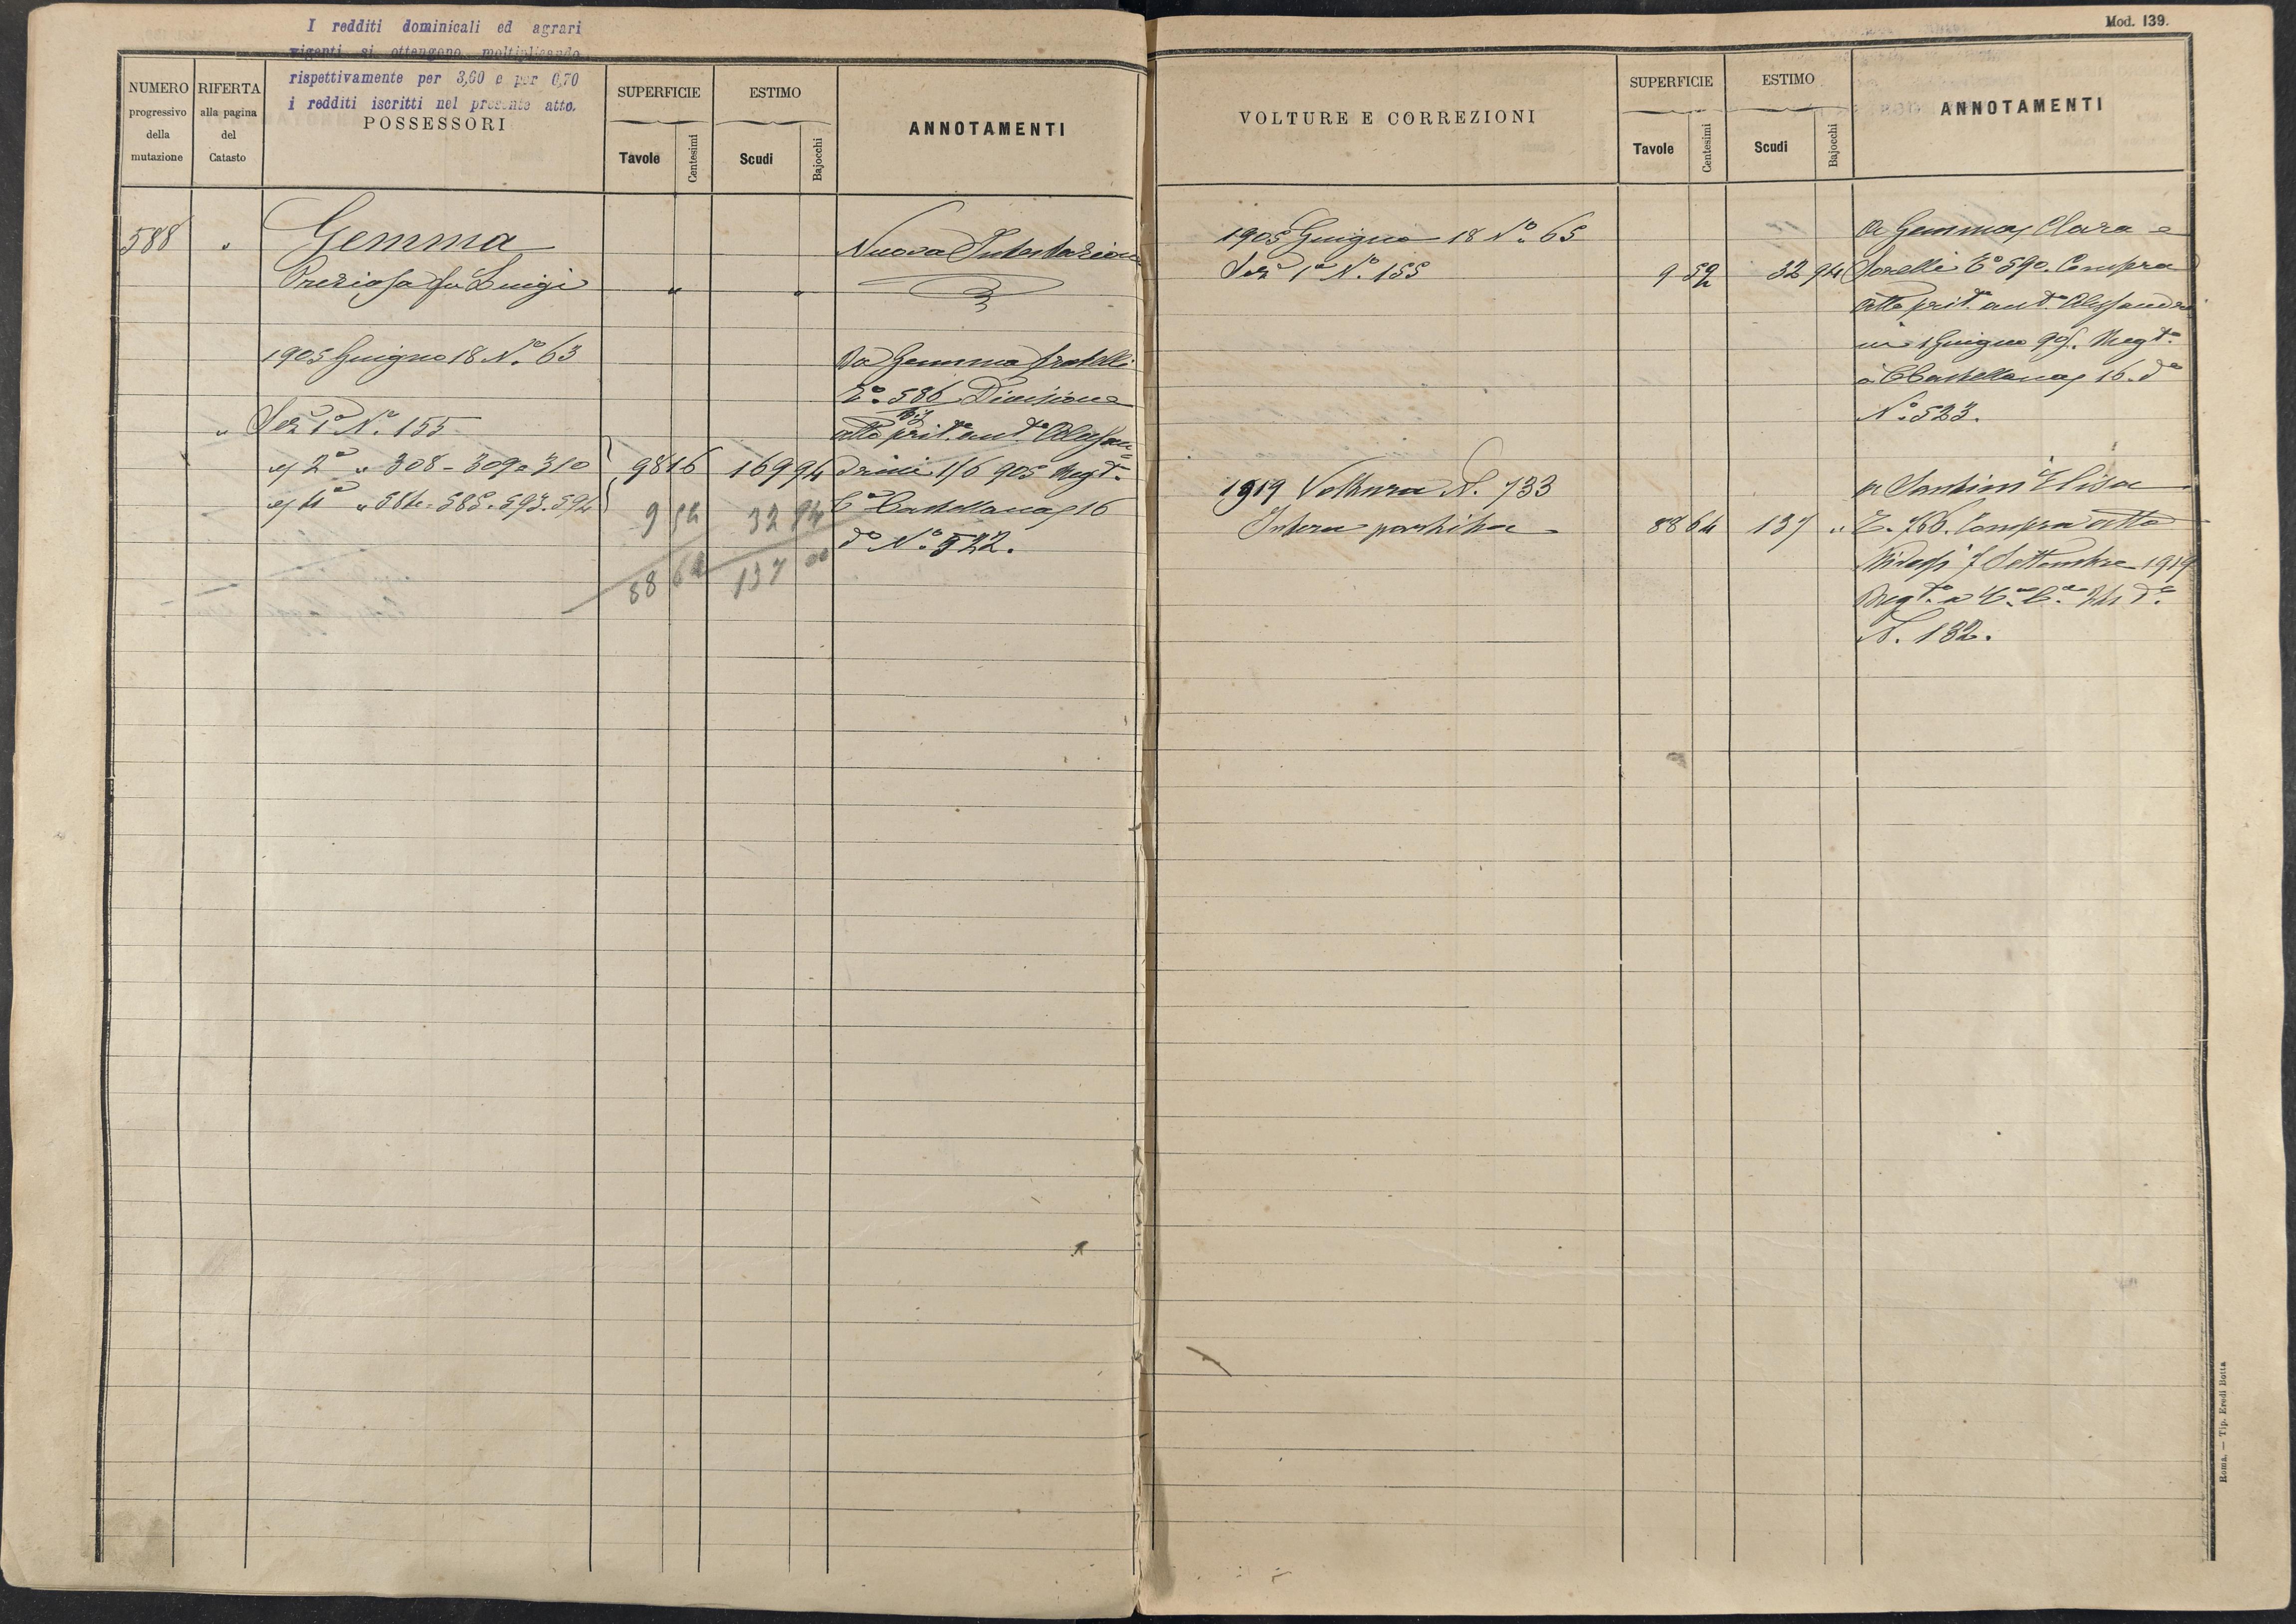 I redditi dominicali ed agrari
vigenti si ottengono moltiplicando
rispettivamente per 3,60 e per 0,70
i redditi iscritti nel presente atto.
Mod. 139.
NUMERO
progressivo
della
mutazione
RIFERTA
alla pagina
del
Catasto
POSSESSORI
SUPERFICIE
Tavole
Centesimi
ESTIMO
Scudi
Bajocchi
ANNOTAMENTI
588 "
Gemma
Preziosa fu Luigi " "
Nuova Intestazione
1905 Giugno 18 Nº 63
" Sez 1ª Nº 155
" 2ª " 308 - 309 a 310
" 4ª " 584. 585. 593. 594
98 16 169 94
9 52 32 94
88 64 137 00
Da Gemma fratelli
Tº 586 Divisione
atto prit. aut. Alessan
drini 1/6 905 Regt.
Cª Castellana 16
dº Nº 522.
VOLTURE E CORREZIONI
SUPERFICIE
Tavole
Centesimi
ESTIMO
Scudi
Bajocchi
ANNOTAMENTI
1905 Giugno 18 Nº 65
Sez 1ª Nº 155 9 52 32 94
A Gemma Clara e
Sorelle Tº 590. Compra
atto prit. aut. Alessandri
ni 1 Giugno 905. Regt.
a C Castellana 16. dº
Nº 523.
1919 Voltura N. 733
Intera partita 88 64 137 "
a Santini Elisa
T. 766. Compra atto
7 Settembre 1919
Regt. a Cª Cª 24 dº
N. 132.
Roma. — Tip. Eredi Botta